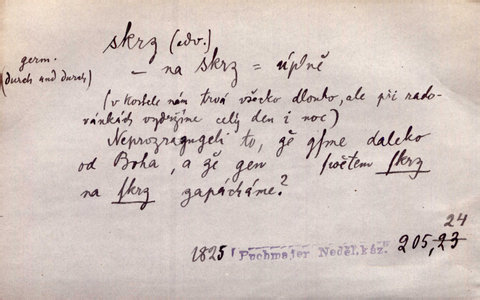 skrz (adv.)
germ.
(durch und durch)
– na skrz = úplně
(v kostele nám trvá všecko dlouho, ale při rado-
vánkách vydržíme celý den i noc)
Neprozragugeli to, že gsme daleko
od Boha, a že gen swětem skrz
na skrz zapácháme?
24
1825 Puchmajer Neděl. káz. 205, 23